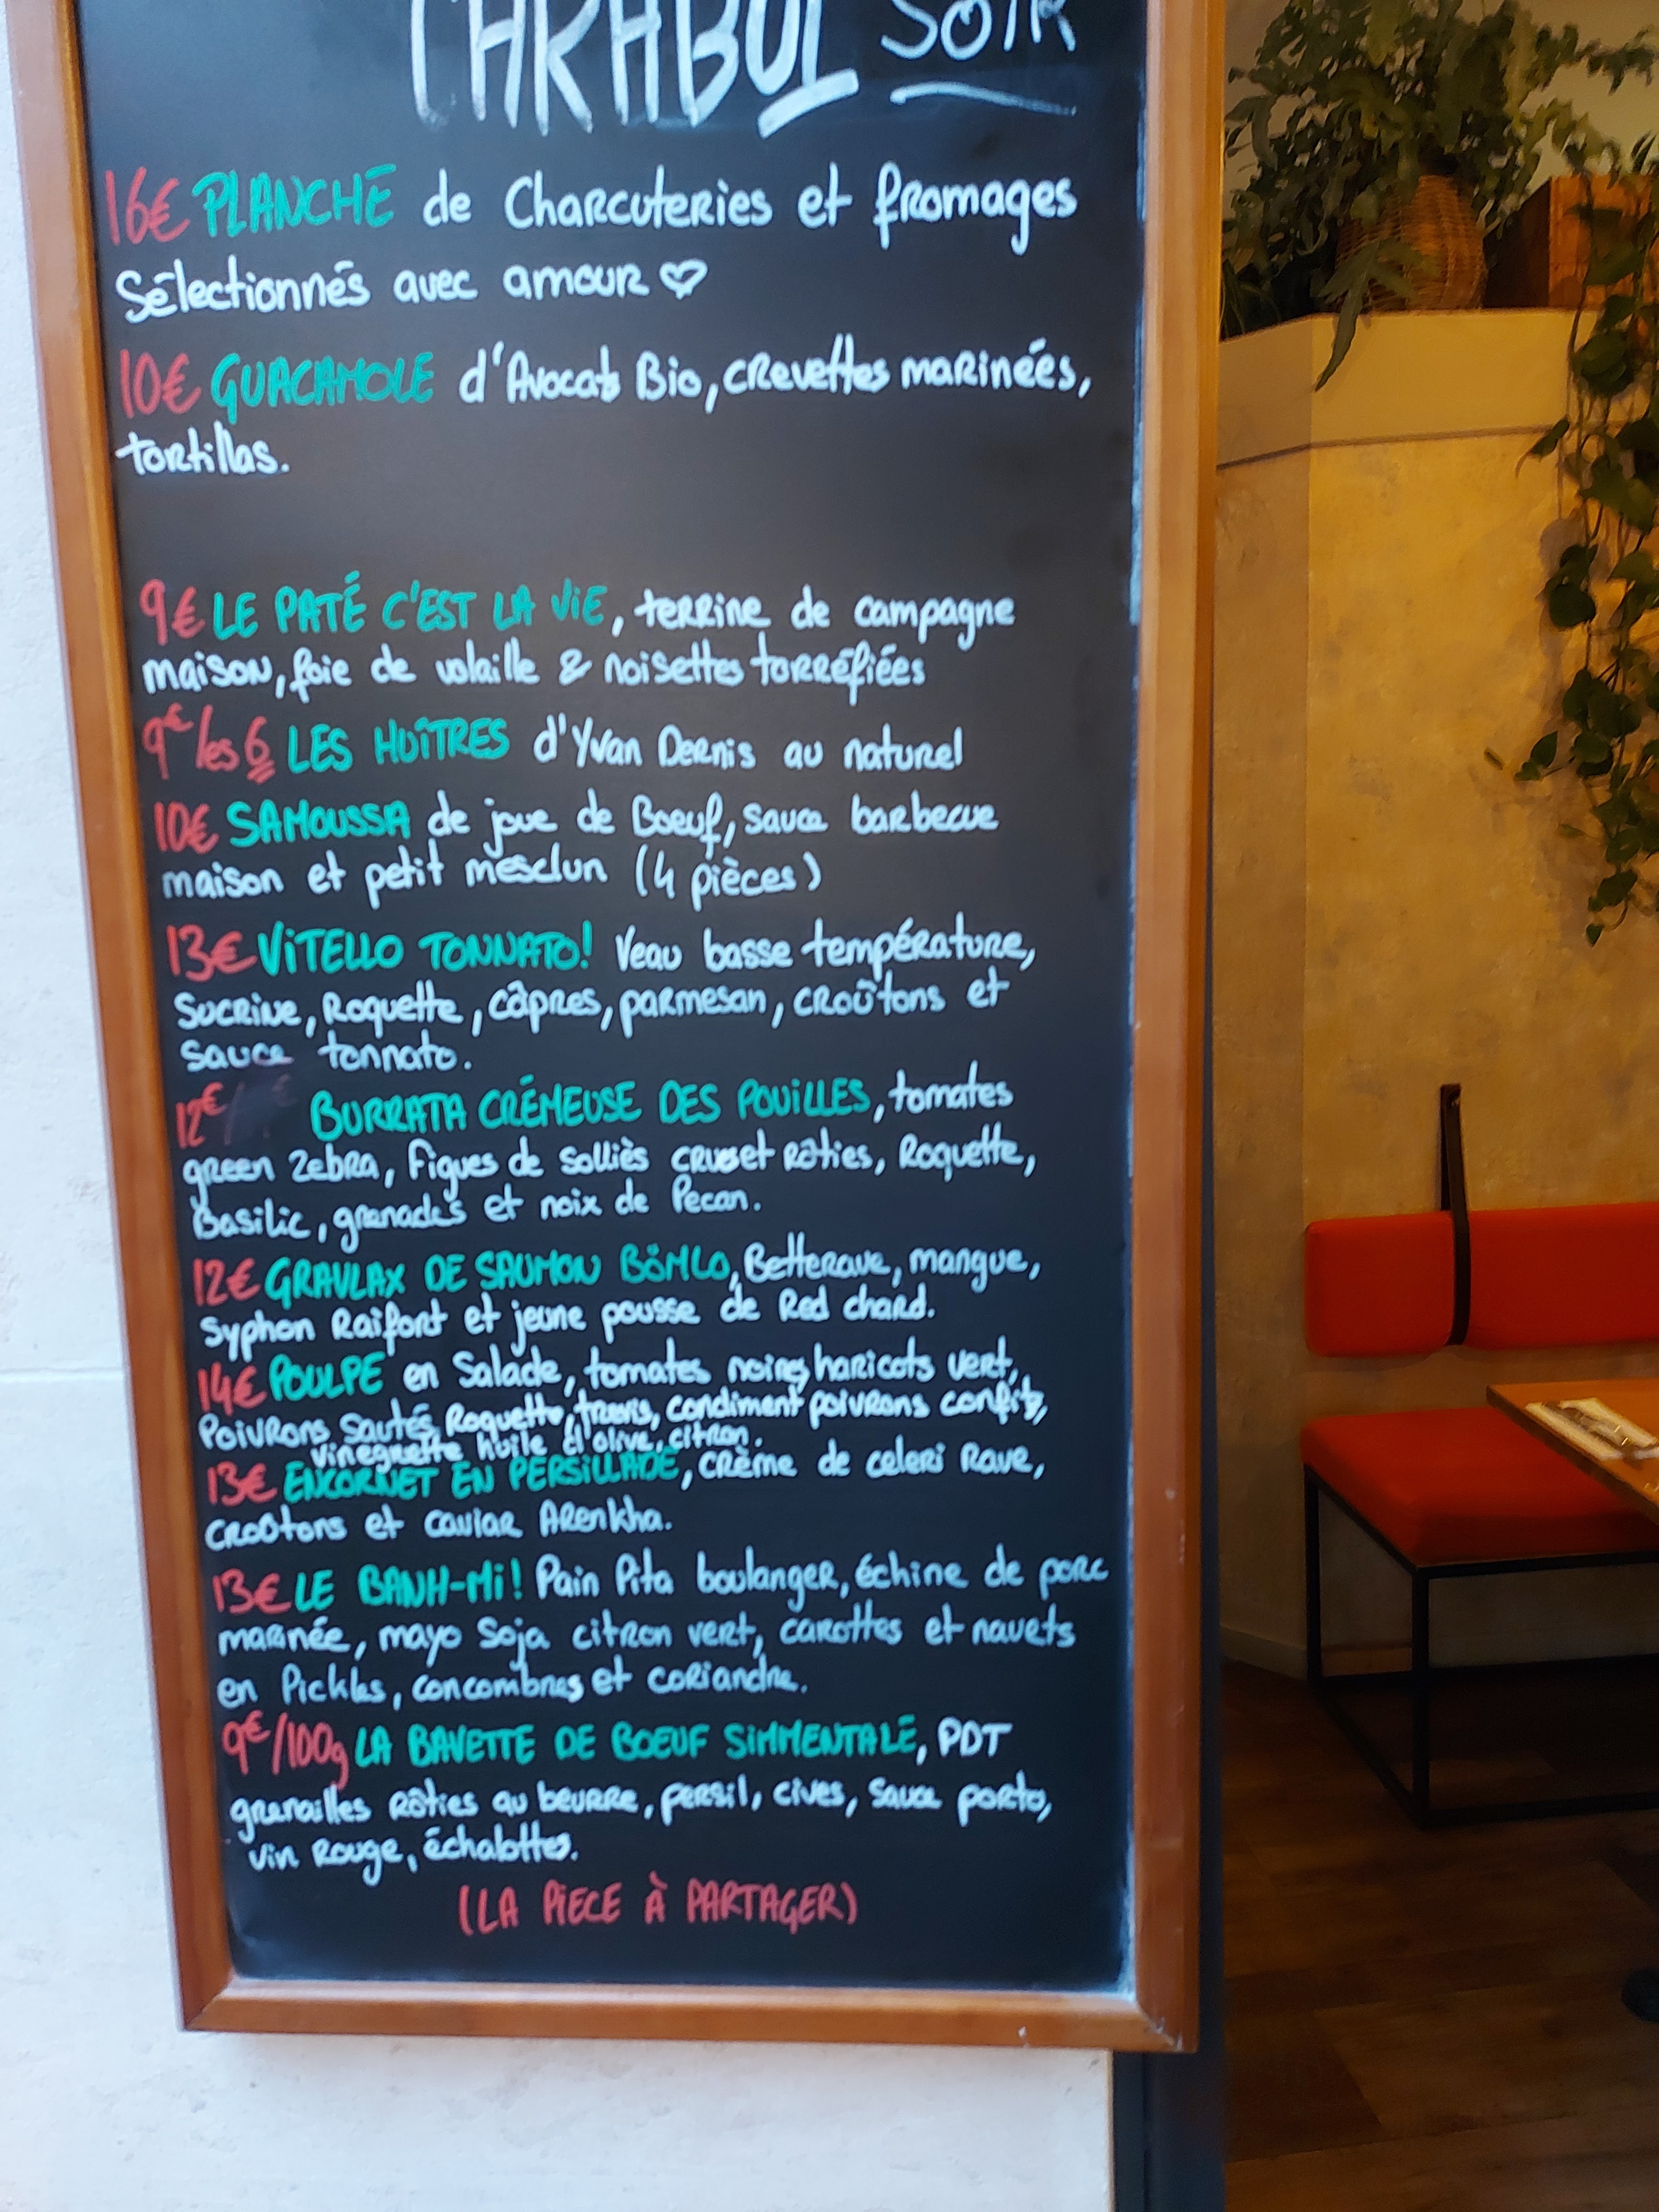 CARABOL SOIR
16€ PLANCHE de Charcuteries et fromages
Sélectionnés avec amour ♡
10€ GUACAMOLE d'Avocats Bio, crevettes marinées,
tortillas.
9€ LE PATÉ C'EST LA ViE, terrine de campagne
maison, foie de volaille & noisettes torréfiées
9€/les 6 LES HUÎTRES d'Yvan Dernis au naturel
10€ SAMOUSSA de joue de Boeuf, sauce barbecue
maison et petit mesclun (4 pièces)
13€ ViTELLO TONNATO! Veau basse température,
Sucrine, Roquette, câpres, parmesan, croûtons et
sauce tonnato.
12€/ € BURRATA CRÉMEUSE DES POUiLLES, tomates
green Zebra, Figues de Solliès cru et Rôties, Roquette,
Basilic, grenades et noix de Pecan.
12€ GRAVLAX DE SAUMON BÖMLO, Betterave, mangue,
Syphon Raifort et jeune pousse de Red chard.
14€ POULPE en Salade, tomates noires, haricots vert,
Poivrons sautés, Roquette, condiment poivrons confits,
vinegrette huile d'olive, citron.
13€ ENCORNET EN PERSiLLADE, crème de celeri Rave,
Croûtons et caviar Arenkha.
13€ LE BANH-Mi! Pain Pita boulanger, échine de porc
marinée, mayo Soja citron vert, carottes et navets
en Pickles, concombres et coriandre.
9€/100g LA BAVETTE DE BOEUF SiMMENTALE, PDT
grenailles Rôties au beurre, persil, cives, sauce porto,
vin Rouge, échalottes.
(LA PiECE À PARTAGER)